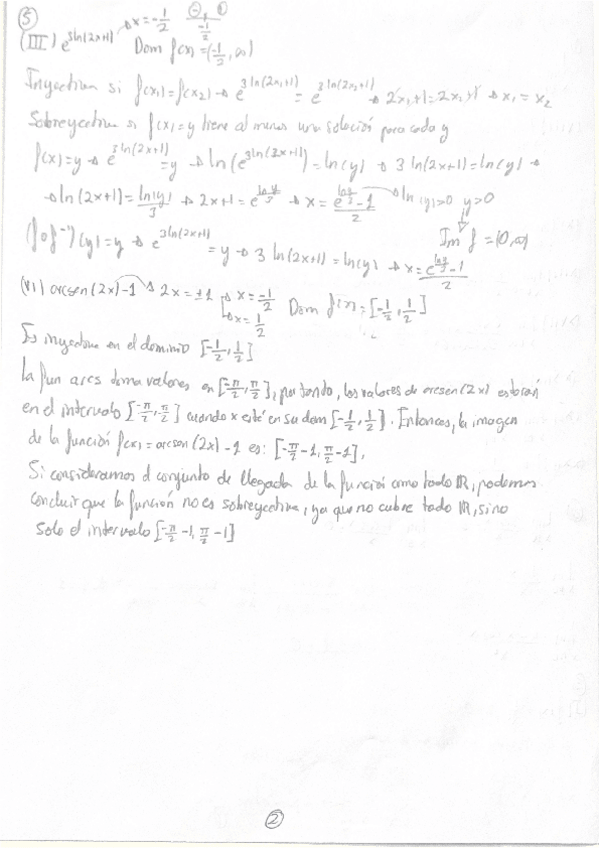 ⑤
(III) e^{3ln(2x+1)} → x=-1/2 ⊖ , ⊕ -1/2
Dom f(x) = (-1/2, ∞)
Inyectiva si f(x₁)=f(x₂) → e^{3ln(2x₁+1)} = e^{3ln(2x₂+1)} → 2x₁+1=2x₂+1 → x₁=x₂
Sobreyectiva si f(x)=y tiene al menos una solución para cada y
f(x)=y → e^{3ln(2x+1)}=y → ln(e^{3ln(2x+1)})=ln(y) → 3ln(2x+1)=ln(y) →
→ ln(2x+1)=ln(y)/3 → 2x+1=e^{lny/3} → x=(e^{lny/3}-1)/2 → ln(y)>0 y>0
Im f=(0,∞)
(f∘f⁻¹)(y)=y → e^{3ln(2x+1)}=y → 3ln(2x+1)=ln(y) → x=(e^{lny/3}-1)/2
(VI) arcsen(2x)-1 → 2x=±1 → x=-1/2 → x=1/2 Dom f(x)=[-1/2, 1/2]
Es inyectiva en el dominio [-1/2, 1/2]
La fun arcs toma valores en [-π/2, π/2], por tando, los valores de arcsen(2x) estarán
en el intervalo [-π/2, π/2] cuando x esté en su dom [-1/2, 1/2]. Entonces, la imagen
de la función f(x)=arcsen(2x)-1 es: [-π/2-1, π/2-1],
Si consideramos el conjunto de llegada de la función como todo ℝ, podemos
concluir que la función no es sobreyectiva, ya que no cubre todo ℝ, sino
solo el intervalo [-π/2-1, π/2-1]
②